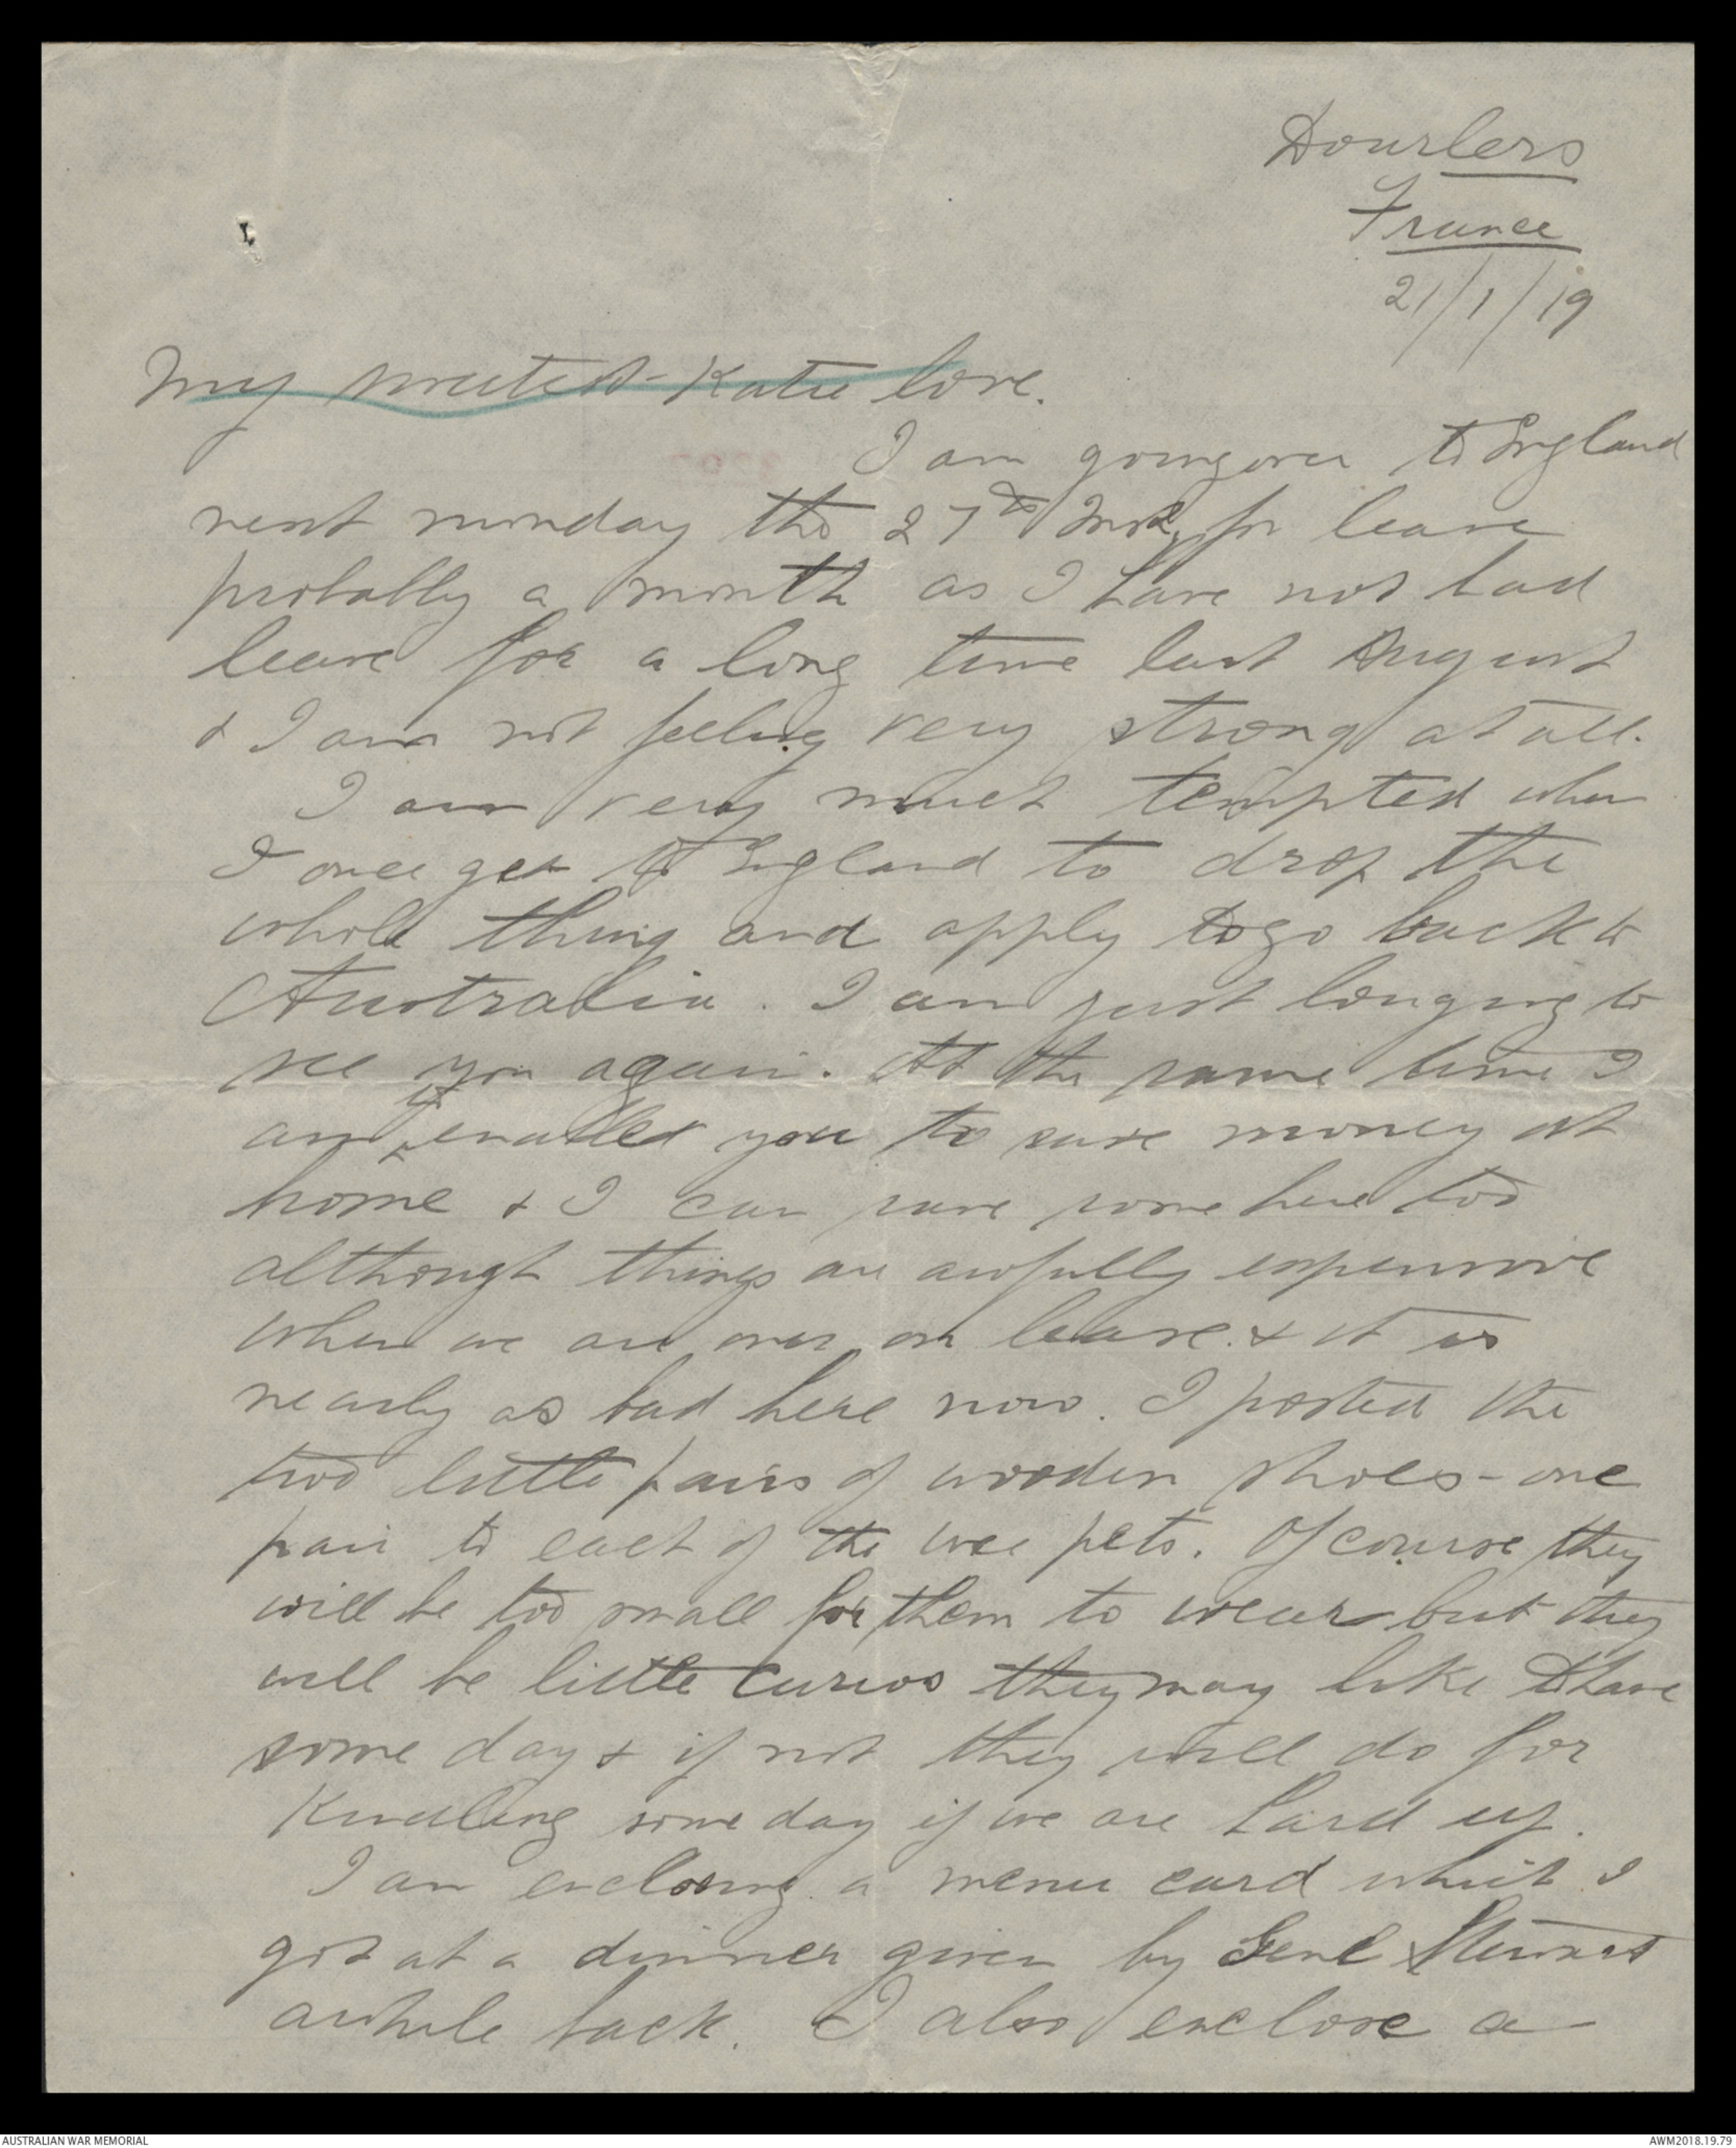 Dourlers
France
21/1/19
My sweetest Katie love.
I am going over to England
next monday the 27th Inst, for leave
probably a month as I have not had
leave for a long time last August
& I am not feeling very strong at all.
I am very much tempted when
I once get to England to drop the
whole thing and apply to go back to
Australia. I am just longing to
see you again. At the same time I
am if enables you to save money at
home & I can save some here too
although things are awfully expensive
when we are over on leave. & it is
nearly as bad here now. I posted the
two little pairs of wooden shoes - one
pair to each of the wee pets. Of course they
will be too small for them to wear but they
will be little curios they may like to have
some day & if not they will do for
Kindling some day if we are hard up.
I am enclosing a menu card which I
got at a dinner given by Genl Stewart
awhile back. I also enclose a
AUSTRALIAN WAR MEMORIAL
AWM2018.19.79